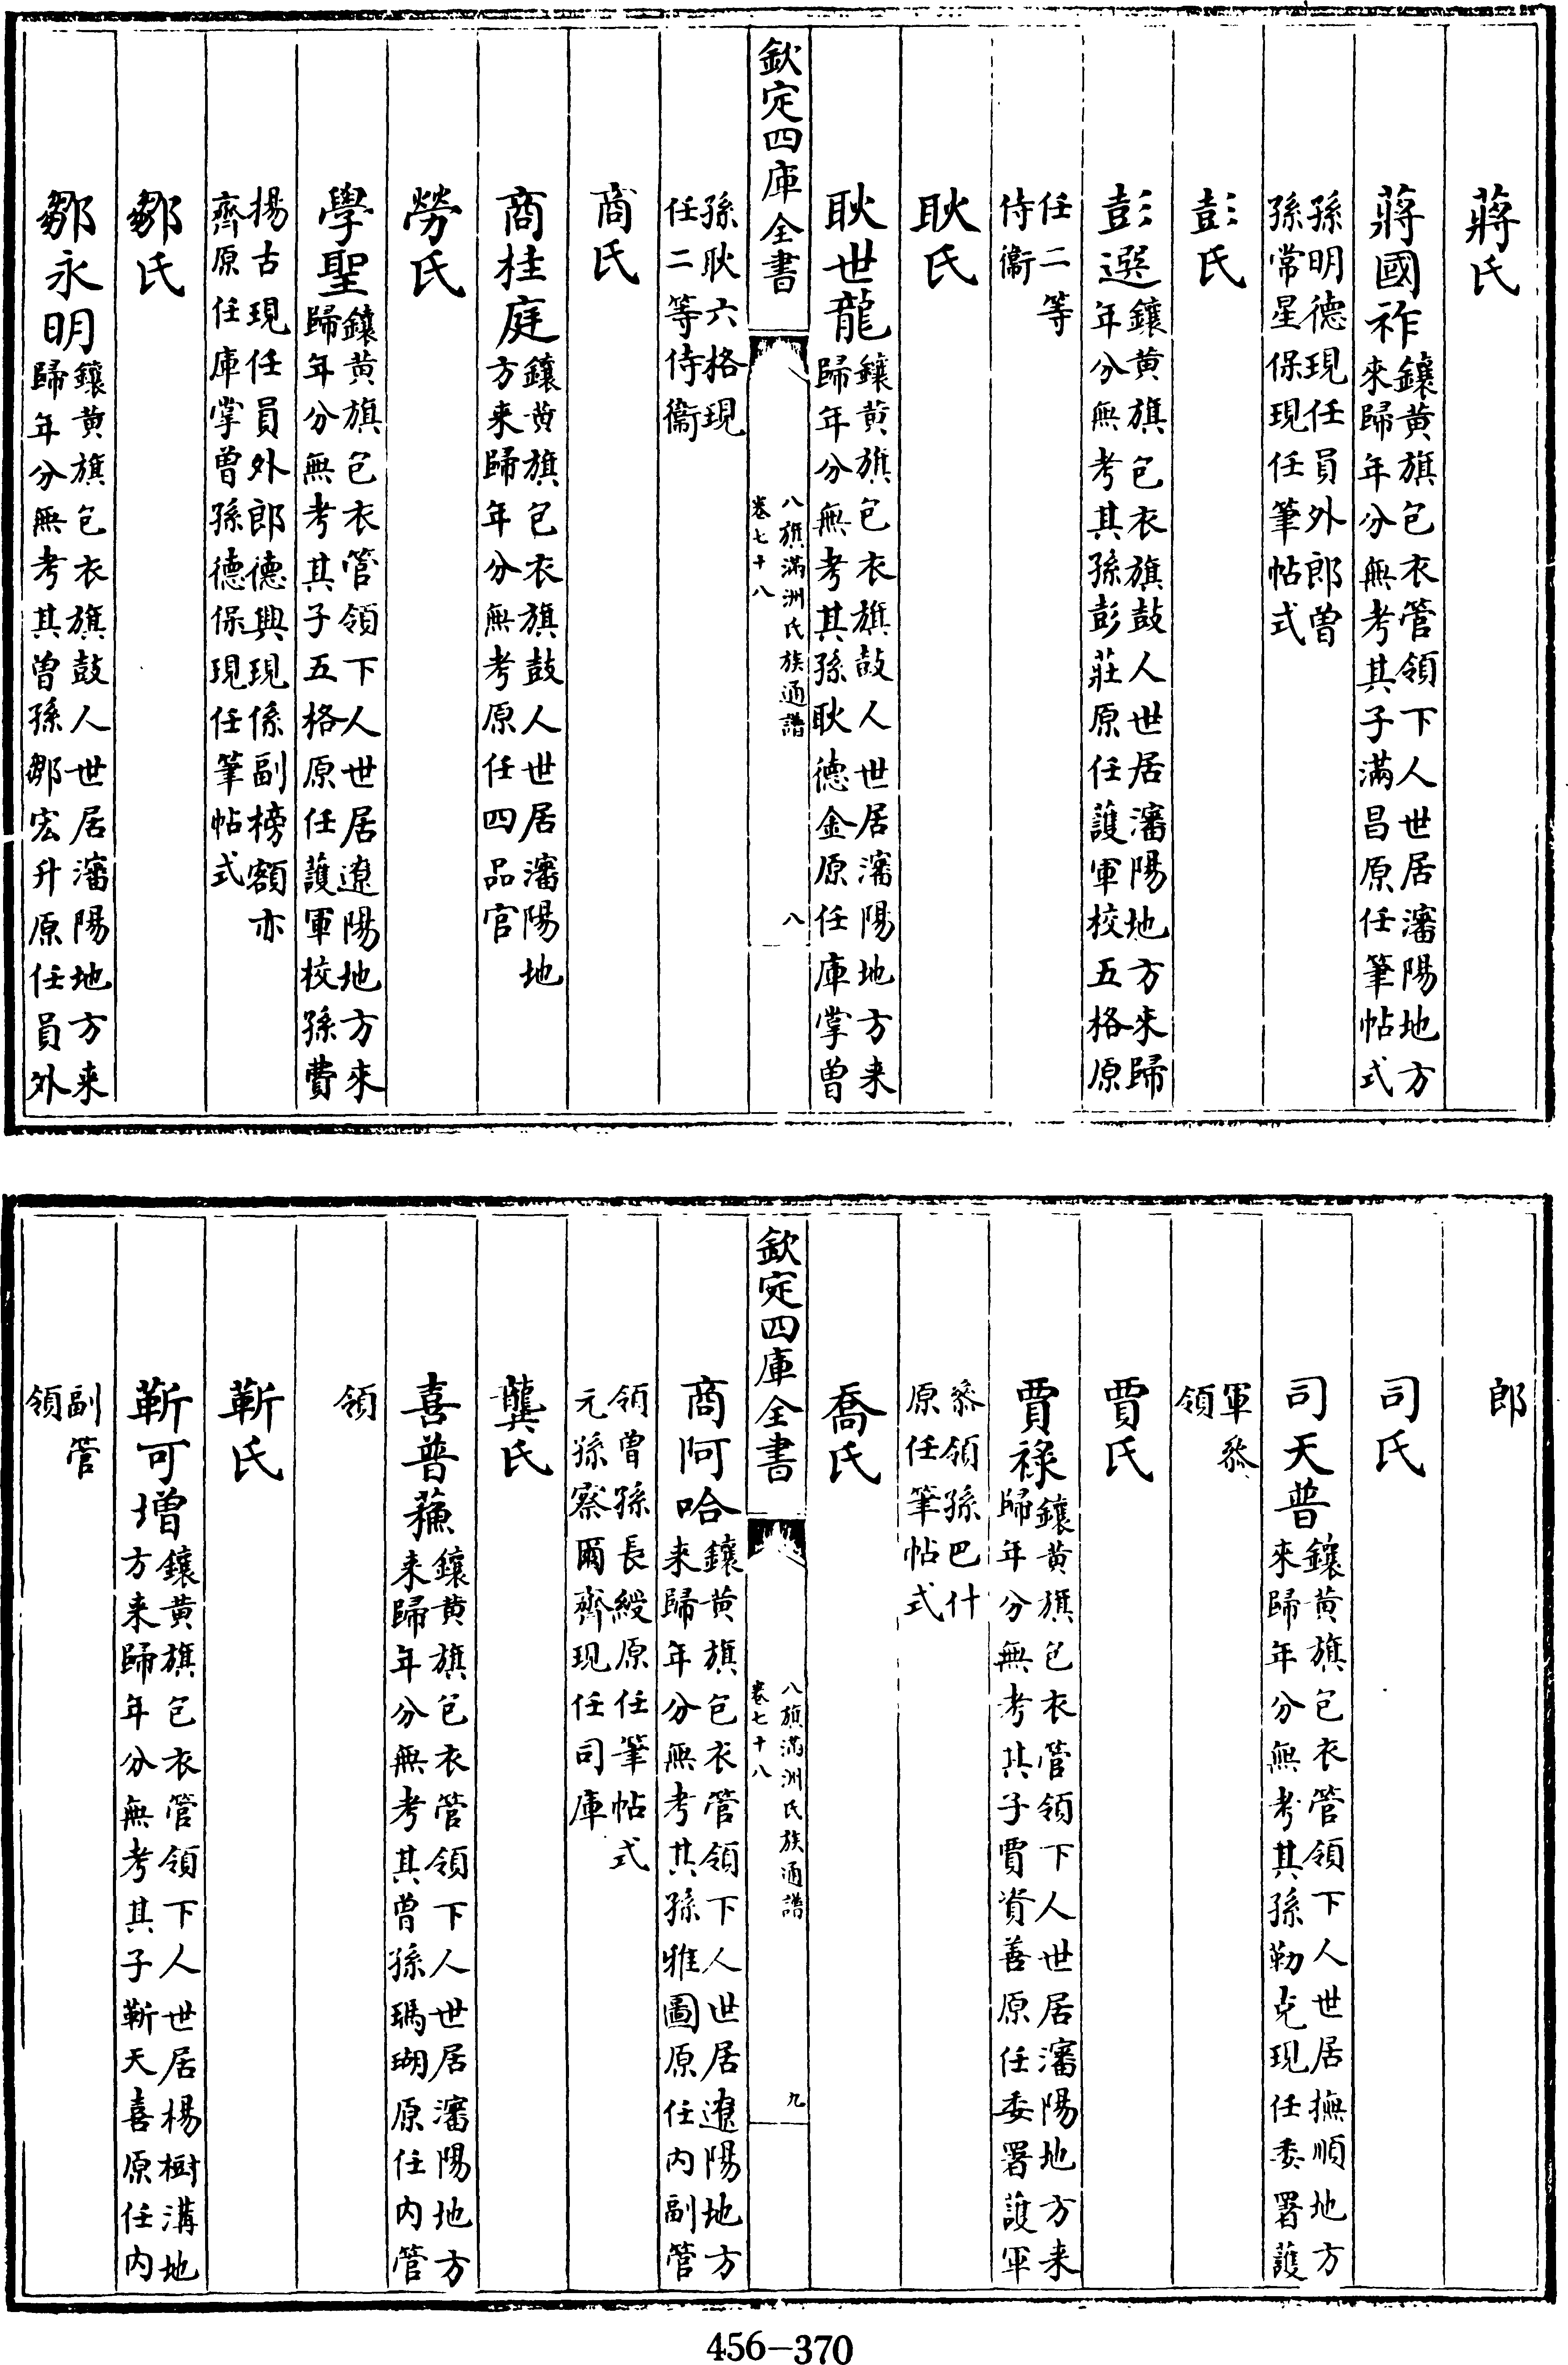 蔣氏
蔣國祚鑲黃旗包衣管領下人世居瀋陽地方
來歸年分無考其子滿昌原任筆帖式
孫明德現任員外郎曾
孫常星保現任筆帖式
彭氏
彭選鑲黃旗包衣旗鼓人世居瀋陽地方來歸
年分無考其孫彭莊原任護軍校五格原
任二等
侍衞
耿氏
耿世龍鑲黃旗包衣旗鼓人世居瀋陽地方来
歸年分無考其孫耿德金原任庫掌曾
欽定四庫全書
八旗滿洲氏族通譜
卷七十八
八
孫耿六格現
任二等侍衞
商氏
商桂庭鑲黃旗包衣旗鼓人世居瀋陽地
方来歸年分無考原任四品官
勞氏
學聖鑲黃旗包衣管領下人世居遼陽地方來
歸年分無考其子五格原任護軍校孫費
揚古現任員外郎德興現係副榜額亦
齊原任庫掌曾孫德保現任筆帖式
鄒氏
鄒永明鑲黃旗包衣旗鼓人世居瀋陽地方来
歸年分無考其曾孫鄒宏升原任員外
郎
司氏
司天普鑲黃旗包衣管領下人世居撫順地方
來歸年分無考其孫勒克現任委署護
軍叅
領
賈氏
賈祿鑲黃旗包衣管領下人世居瀋陽地方来
歸年分無考其子賈資善原任委署護軍
叅領孫巴什
原任筆帖式
喬氏
欽定四庫全書
八旗滿洲氏族通譜
卷七十八
九
商阿哈鑲黃旗包衣管領下人世居遼陽地方
来歸年分無考其孫雅圖原任内副管
領曾孫長綬原任筆帖式
元孫察爾齊現任司庫
龔氏
喜普蘓鑲黃旗包衣管領下人世居瀋陽地方
来歸年分無考其曾孫瑪瑚原任内管
領
靳氏
靳可增鑲黃旗包衣管領下人世居楊樹溝地
方来歸年分無考其子靳天喜原任内
副管
領
456-370